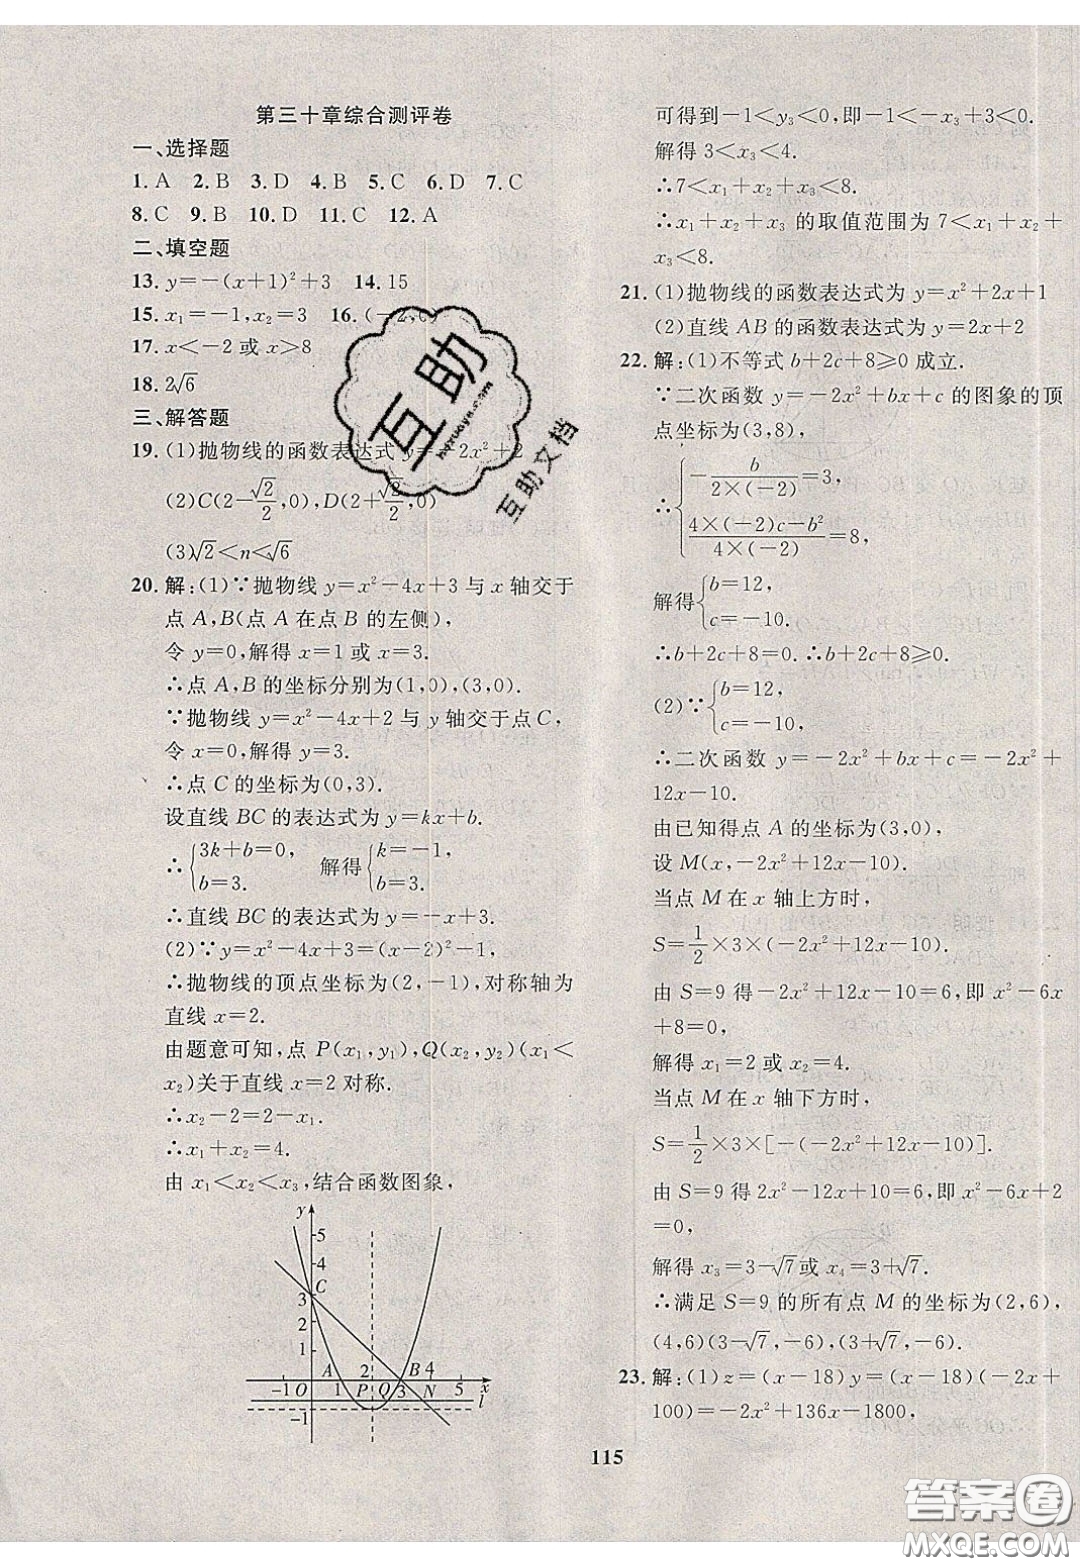 第三十章综合测评卷
一、选择题
1. A 2. B 3. D 4. B 5. C 6. D 7. C
8. C 9. B 10. D 11. C 12. A
二、填空题
13. y=-(x+1)²+3 14. 15
15. x₁=-1,x₂=3 16. (-2,6)
17. x<-2 或 x>8
18. 2√6
三、解答题
19. (1)抛物线的函数表达式 y=-2x²+2
(2)C(2-√2/2,0),D(2+√2/2,0)
(3)√2<n<√6
20. 解:(1)∵抛物线 y=x²-4x+3 与 x 轴交于
点 A,B(点 A 在点 B 的左侧),
令 y=0,解得 x=1 或 x=3.
∴点 A,B 的坐标分别为(1,0),(3,0).
∵抛物线 y=x²-4x+2 与 y 轴交于点 C,
令 x=0,解得 y=3.
∴点 C 的坐标为(0,3).
设直线 BC 的表达式为 y=kx+b.
∴{3k+b=0, b=3. 解得{k=-1, b=3.
∴直线 BC 的表达式为 y=-x+3.
(2)∵y=x²-4x+3=(x-2)²-1,
∴抛物线的顶点坐标为(2,-1),对称轴为
直线 x=2.
由题意可知,点 P(x₁,y₁),Q(x₂,y₂)(x₁<
x₂)关于直线 x=2 对称.
∴x₂-2=2-x₁.
∴x₁+x₂=4.
由 x₁<x₂<x₃,结合函数图象,
y
5
4
3 C
2
1
A 2 B 4
-1 O 1 P Q 3 N 5 x
-1 l
可得到-1<y₃<0,即-1<-x₃+3<0.
解得 3<x₃<4.
∴7<x₁+x₂+x₃<8.
∴x₁+x₂+x₃ 的取值范围为 7<x₁+x₂+
x₃<8.
21. (1)抛物线的函数表达式为 y=x²+2x+1
(2)直线 AB 的函数表达式为 y=2x+2
22. 解:(1)不等式 b+2c+8≥0 成立.
∵二次函数 y=-2x²+bx+c 的图象的顶
点坐标为(3,8),
∴{-b/(2×(-2))=3, (4×(-2)c-b²)/(4×(-2))=8,
解得{b=12, c=-10.
∴b+2c+8=0. ∴b+2c+8≥0.
(2)∵{b=12, c=-10,
∴二次函数 y=-2x²+bx+c=-2x²+
12x-10.
由已知得点 A 的坐标为(3,0),
设 M(x,-2x²+12x-10).
当点 M 在 x 轴上方时,
S=1/2×3×(-2x²+12x-10).
由 S=9 得-2x²+12x-10=6,即 x²-6x
+8=0,
解得 x₁=2 或 x₂=4.
当点 M 在 x 轴下方时,
S=1/2×3×[-(-2x²+12x-10)].
由 S=9 得 2x²-12x+10=6,即 x²-6x+2
=0,
解得 x₃=3-√7或 x₄=3+√7.
∴满足 S=9 的所有点 M 的坐标为(2,6),
(4,6)(3-√7,-6),(3+√7,-6).
23. 解:(1)z=(x-18)y=(x-18)(-2x+
100)=-2x²+136x-1800,
115
互助
互助文档
答案卷
MXQE.COM